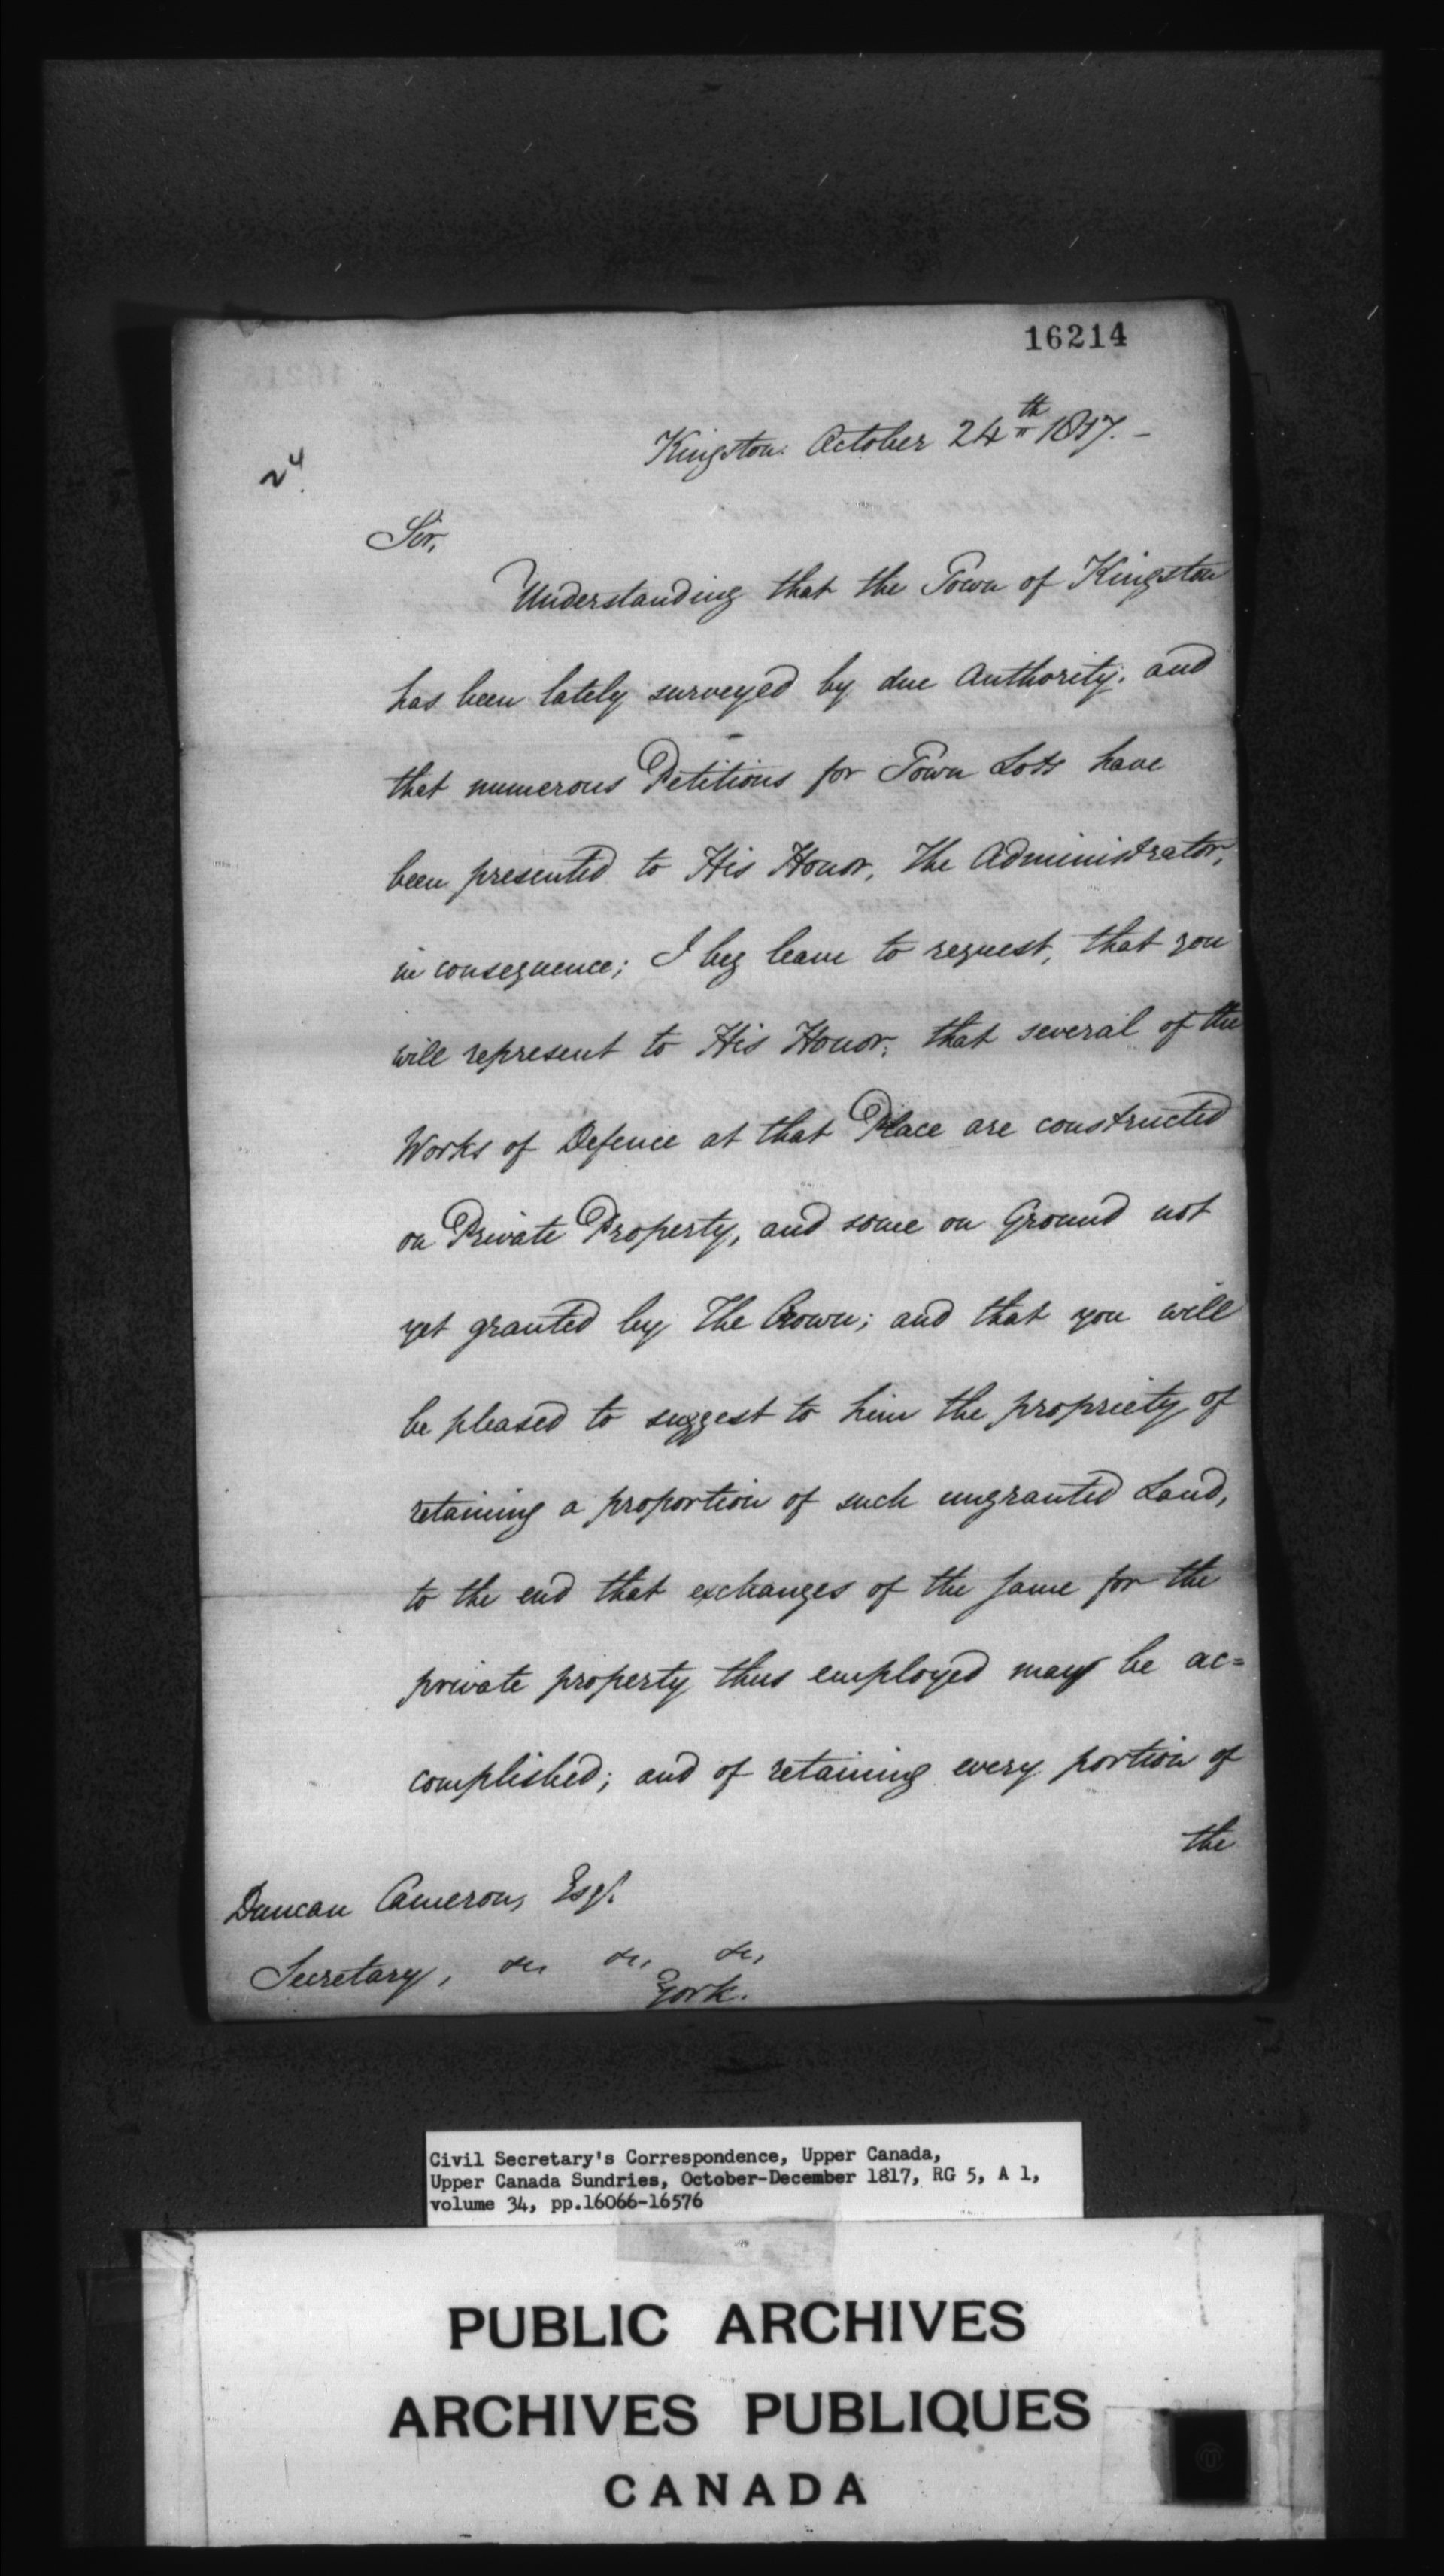 16214
Kingston. October 24th 1817. -
24
Sir,
Understanding that the Town of Kingston
has been lately surveyed by due Authority, and
that numerous Petitions for Town Lots have
been presented to His Honor, The Administrator,
in consequence; I beg leave to request, that you
will represent to His Honor, that several of the
Works of Defence at that Place are constructed
on Private Property, and some on Ground not
yet granted by The Crown; and that you will
be pleased to suggest to him the propriety of
retaining a proportion of such ungranted Land,
to the end that exchanges of the same for the
private property thus employed may be ac=
complished; and of retaining every portion of
the
Duncan Cameron, Esqr.
Secretary, &c, &c, &c,
York.
Civil Secretary's Correspondence, Upper Canada,
Upper Canada Sundries, October-December 1817, RG 5, A 1,
volume 34, pp.16066-16576
PUBLIC ARCHIVES
ARCHIVES PUBLIQUES
CANADA